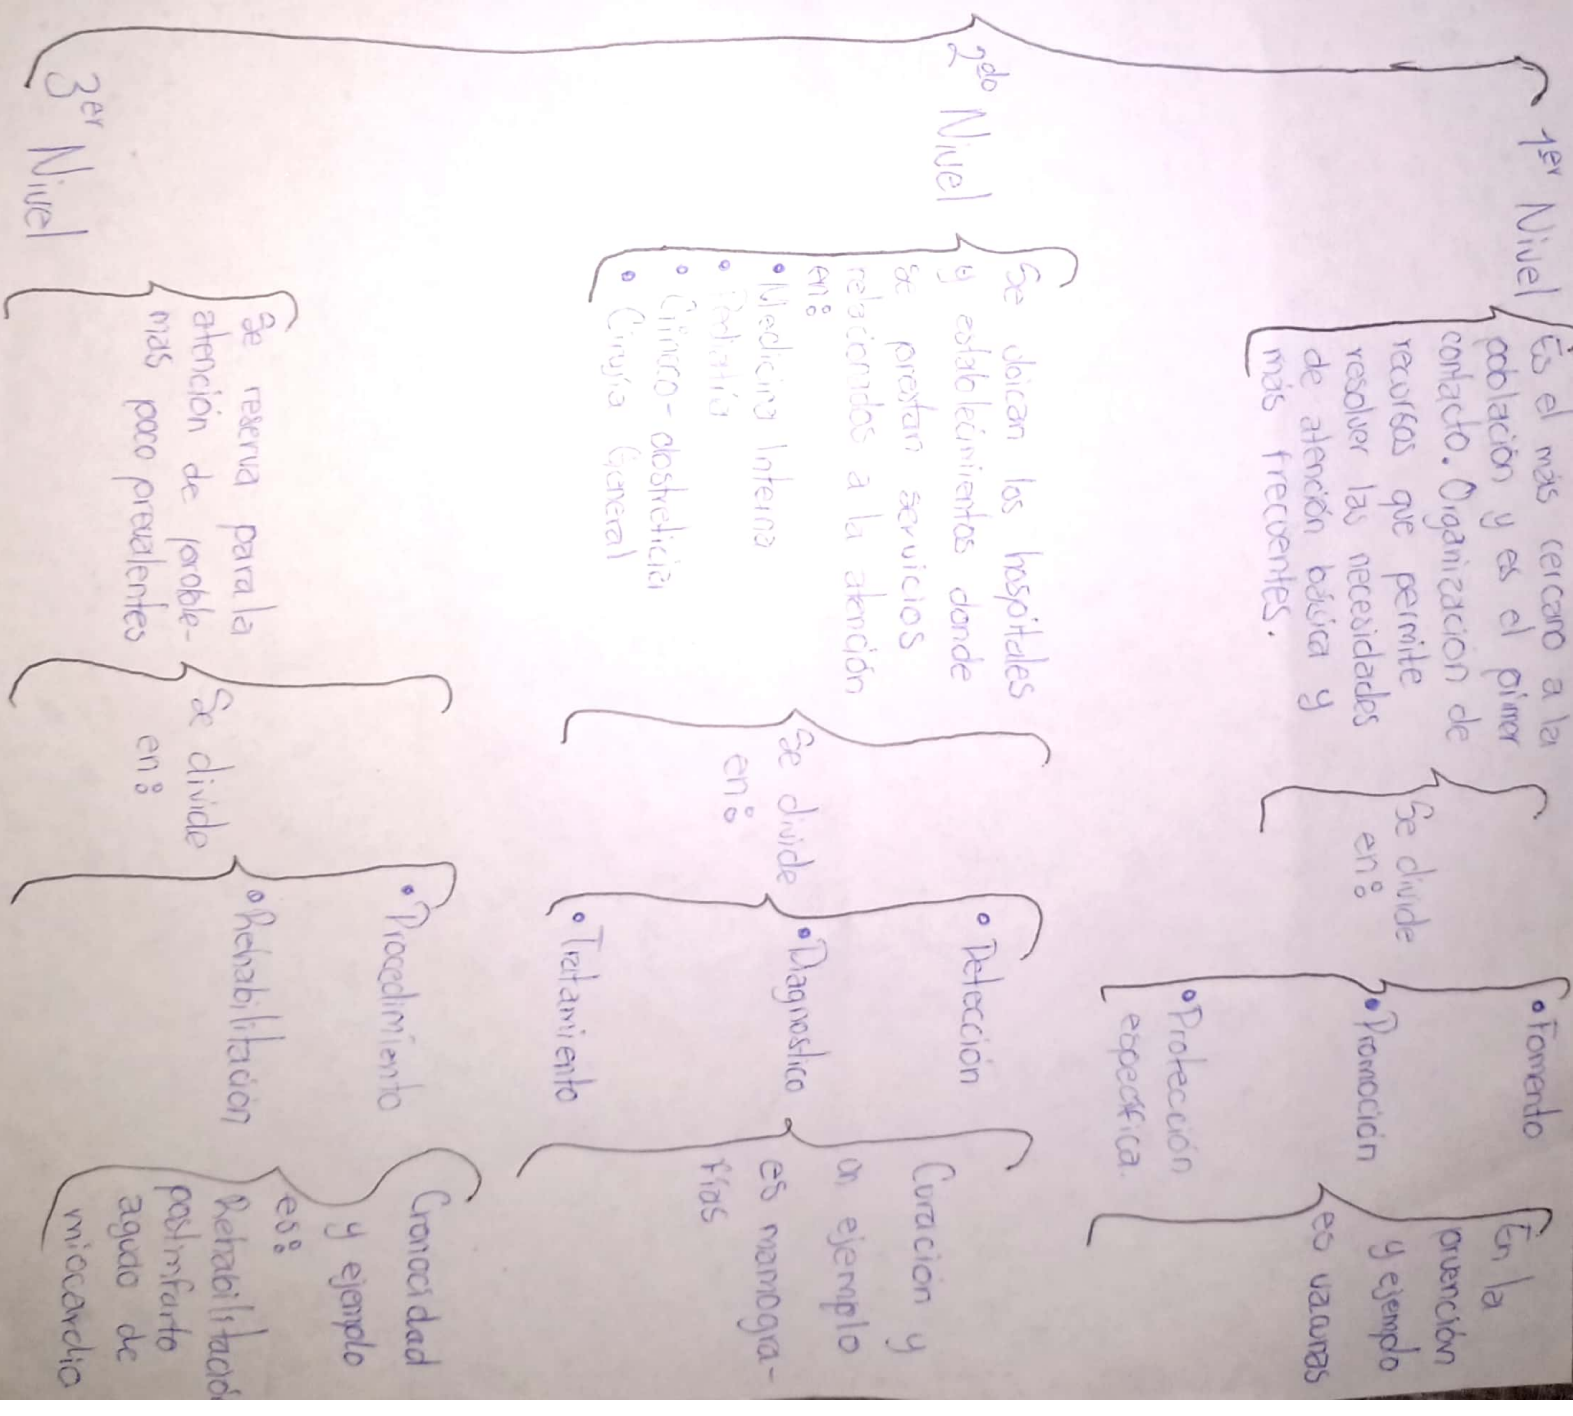 1er Nivel
Es el más cercano a la
población y es el pimer
contacto. Organización de
recursos que permite
resolver las necesidades
de atención básica y
más frecuentes.
Se divide
en:
• Fomento
• Promoción
• Protección
específica.
En la
prvención
y ejemplo
es vacunas
2do Nivel
Se ubican los hospitales
y establecimientos donde
se prestan servicios
relacionados a la atención
en:
• Medicina Interna
• Pediatría
• Ginico-obstreticia
• Cirugía General
Se divide
en:
• Detección
• Diagnostico
• Tratamiento
Curación y
un ejemplo
es mamogra-
fías
3er Nivel
Se reserva para la
atención de proble-
mas poco prevalentes
Se divide
en:
• Procedimiento
• Rehabilitación
Cronocidad
y ejemplo
es:
Rehabilitació
postinfarto
agudo de
miocardio